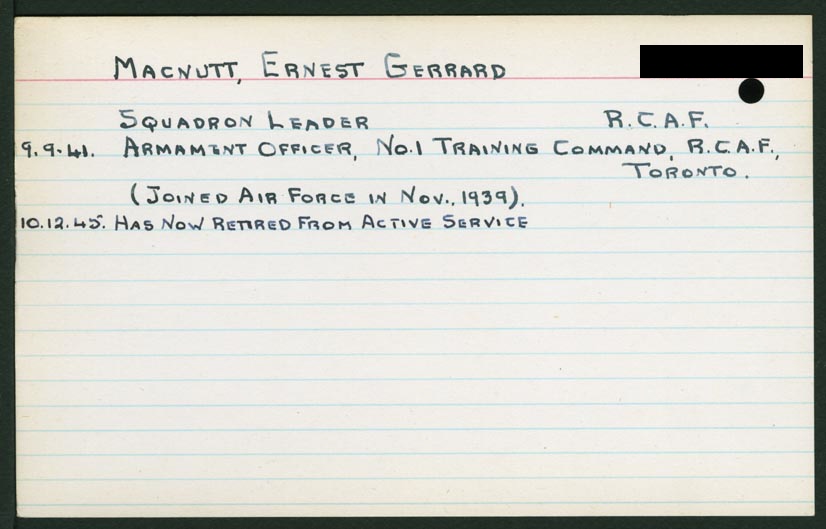 MACNUTT, ERNEST GERRARD
SQUADRON LEADER R.C.A.F.
9.9.41. ARMAMENT OFFICER, No.1 TRAINING COMMAND, R.C.A.F.,
TORONTO.
(JOINED AIR FORCE IN NOV., 1939).
10.12.45. HAS NOW RETIRED FROM ACTIVE SERVICE